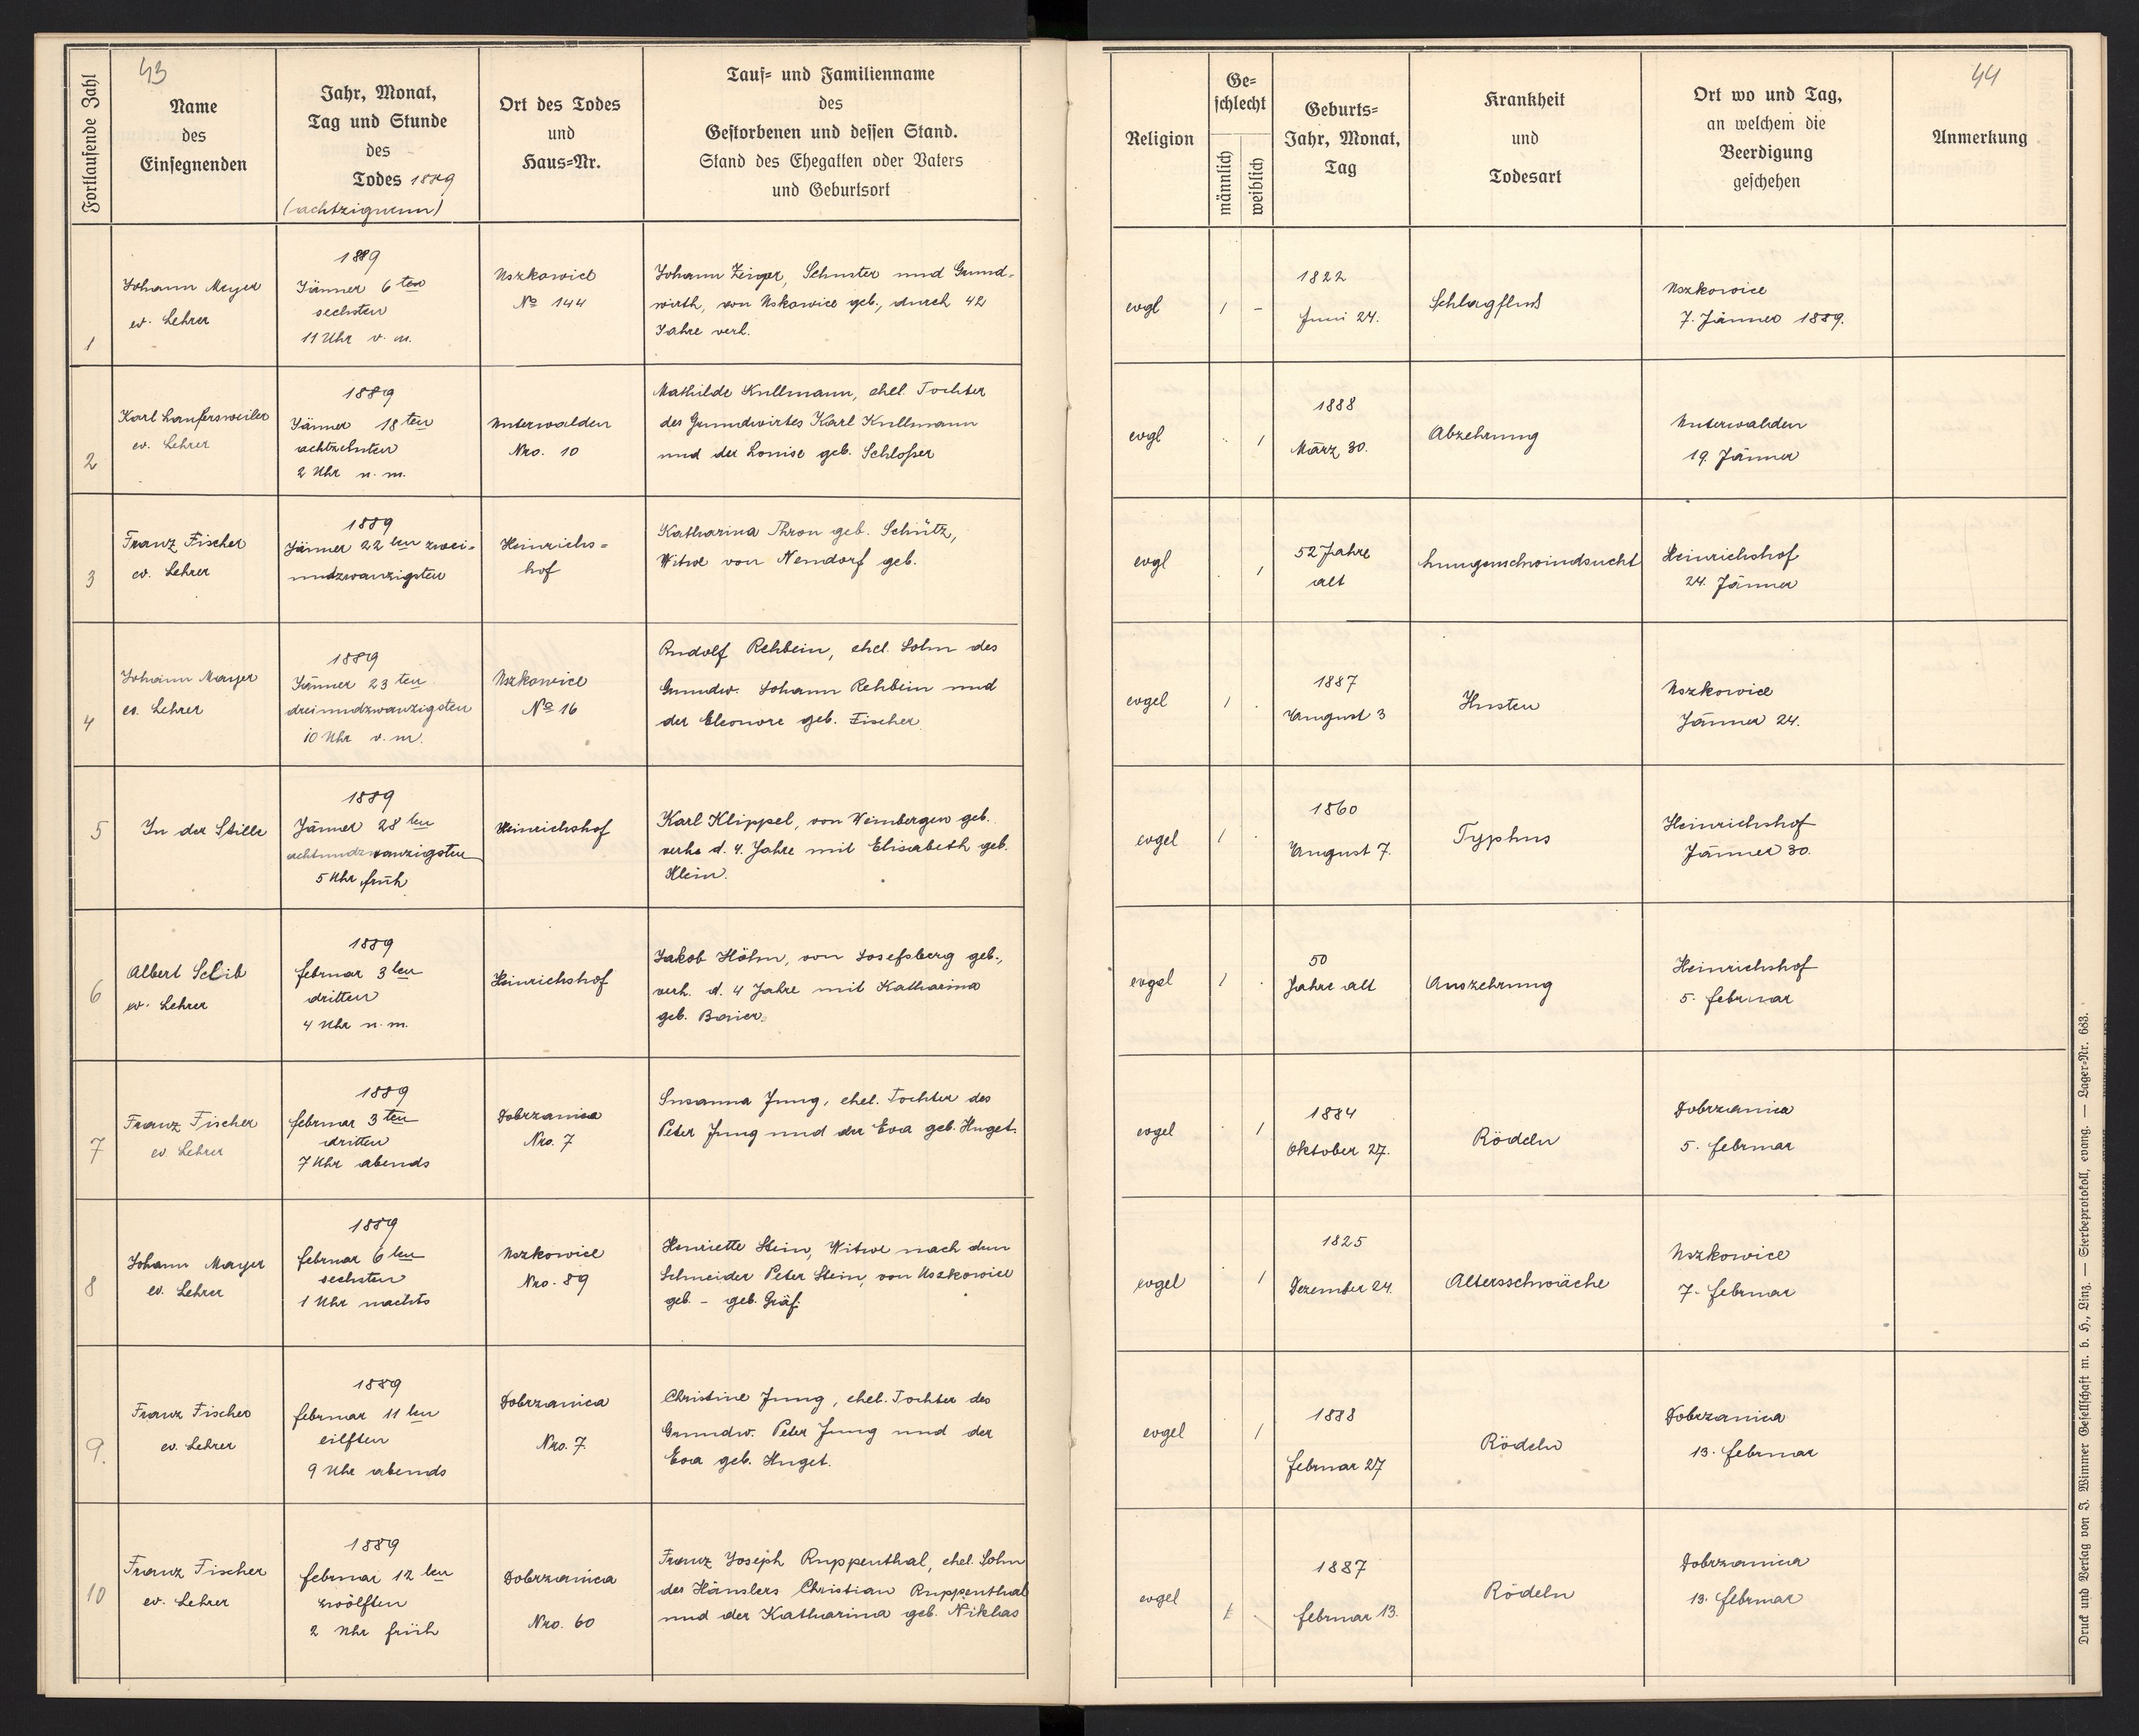 43
Fortlaufende Zahl
Name
des
Einsegnenden
Jahr, Monat,
Tag und Stunde
des
Todes 1889
(achtzigneun)
Ort des Todes
und
Haus=Nr.
Tauf= und Familienname
des
Gestorbenen und dessen Stand.
Stand des Ehegatten oder Vaters
und Geburtsort
Religion
Ge=
schlecht
männlich
weiblich
Geburts=
Jahr, Monat,
Tag
Krankheit
und
Todesart
Ort wo und Tag,
an welchem die
Beerdigung
geschehen
44
Anmerkung
1
Johann Meyer
ev. Lehrer
1889
Jänner 6ten
sechsten
11 Uhr v. m.
Uszkowice
No 144
Johann Zeiger, Schuster und Grund-
wirth, von Uskowice geb., durch 42
Jahre verh.
evgl
1
-
1822
Juni 24.
Schlagfluß
Uszkowice
7. Jänner 1889.
2
Karl Laufersweiler
ev. Lehrer
1889
Jänner 18ten
achtzehnten
2 Uhr n. m.
Unterwalden
Nro. 10
Mathilde Kullmann, ehel. Tochter
des Grundwirtes Karl Kullmann
und der Louise geb. Schloßer
evgl
1
1888
März 30.
Abzehrung
Unterwalden
19. Jänner
3
Franz Fischer
ev. Lehrer
1889
Jänner 22ten zwei=
undzwanzigsten
Heinrichs=
hof
Katharina Thron geb. Schütz,
Witwe von Neudorf geb.
evgl
1
52 Jahre
alt
Lungenschwindsucht
Heinrichshof
24. Jänner
4
Johann Mayer
ev. Lehrer
1889
Jänner 23ten
dreiundzwanzigsten
10 Uhr v. m.
Uszkowice
No 16
Rudolf Rehbein, ehel. Sohn des
Grundw. Johann Rehbein und
der Eleonore geb. Fischer
evgel
1
1887
August 3
Husten
Uszkowice
Jänner 24.
5
In der Stille
1889
Jänner 28ten
achtundzwanzigsten
5 Uhr früh
Heinrichshof
Karl Klippel, von Weinbergen geb.
verh. d. 4. Jahre mit Elisabeth geb.
Klein.
evgel
1
1860
August 7.
Typhus
Heinrichshof
Jänner 30.
6
Albert Scheib
ev. Lehrer
1889
februar 3ten
dritten
4 Uhr n. m.
Heinrichshof
Jakob Höhn, von Josefsberg geb.,
verh. d. 4 Jahre mit Katharina
geb. Baier.
evgel
1
50
Jahre alt
Auszehrung
Heinrichshof
5. februar
7
Franz Fischer
ev. Lehrer
1889
februar 3ten
dritten
7 Uhr abends
Dobrzanica
Nro. 7
Susanna Jung, ehel. Tochter des
Peter Jung und der Eva geb. Huget.
evgel
1
1884
Oktober 27.
Rödeln
Dobrzanica
5. februar
8
Johann Mayer
ev. Lehrer
1889
februar 6ten
sechsten
1 Uhr nachts
Uszkowice
Nro. 89
Henriette Stein, Witwe nach dem
Schneider Peter Stein, von Uszkowice
geb. - geb. Gräf.
evgel
1
1825
Dezember 24.
Altersschwäche
Uszkowice
7. februar
9.
Franz Fischer
ev. Lehrer
1889
februar 11ten
eilften
9 Uhr abends
Dobrzanica
Nro. 7.
Christine Jung, ehel. Tochter des
Grundw. Peter Jung und der
Eva geb. Huget.
evgel
1
1888
februar 27
Rödeln
Dobrzanica
13. februar
10
Franz Fischer
ev. Lehrer
1889
februar 12ten
zwölften
2 Uhr früh
Dobrzanica
Nro. 60
Franz Joseph Ruppenthal, ehel. Sohn
des Häuslers Christian Ruppenthal
und der Katharina geb. Niklas
evgel
1
1887
februar 13.
Rödeln
Dobrzanica
13. februar
Druck und Verlag von J. Wimmer Gesellschaft m. b. H., Linz. — Sterbeprotokoll, evang. — Lager=Nr. 683.